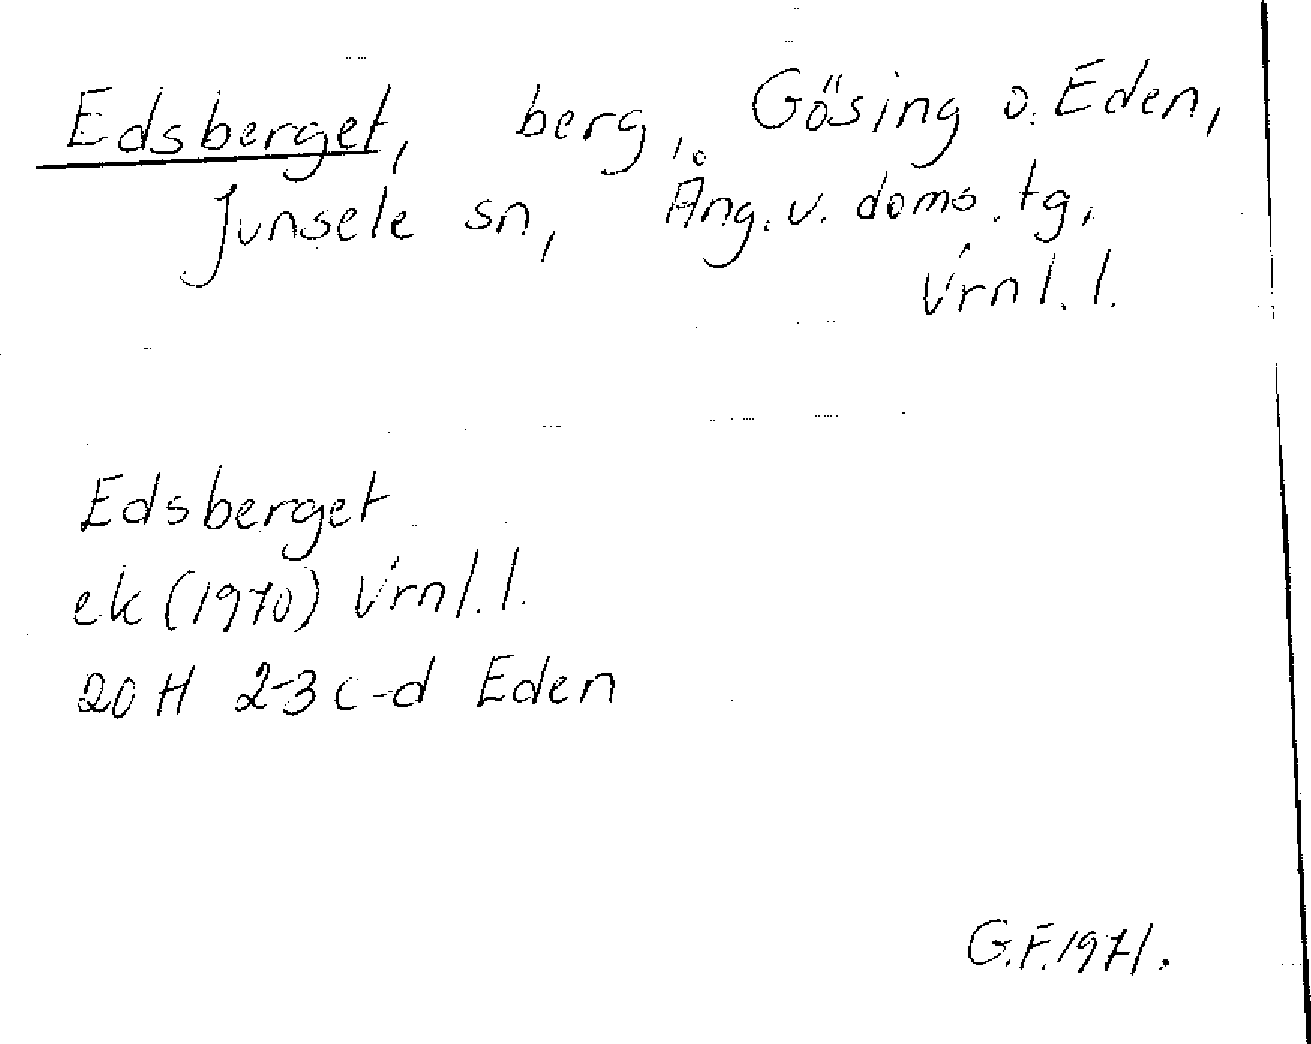 Edsberget, berg, Gösing o. Eden,
Junsele sn, Ång. v. doms. tg,
Vrnl. l.
Edsberget
ek (1970) Vrnl. l.
20 H 2-3 c-d Eden
G.F. 1971.